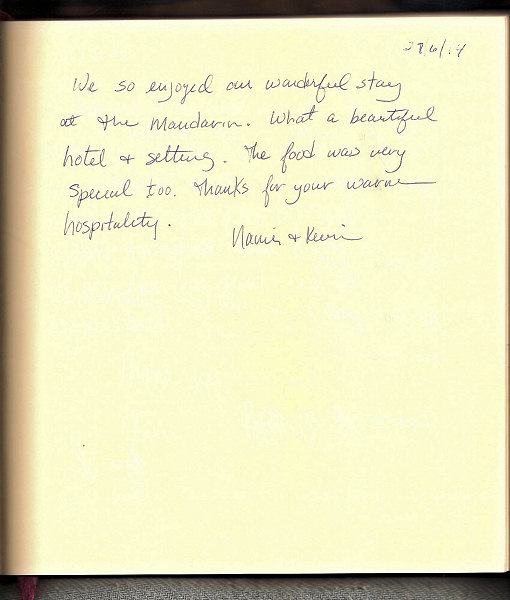 28/6/14
We so enjoyed our wonderful stay
at the Mandarin. What a beautiful
hotel & setting. The food was very
special too. Thanks for your warm
hospitality.
& Kevin